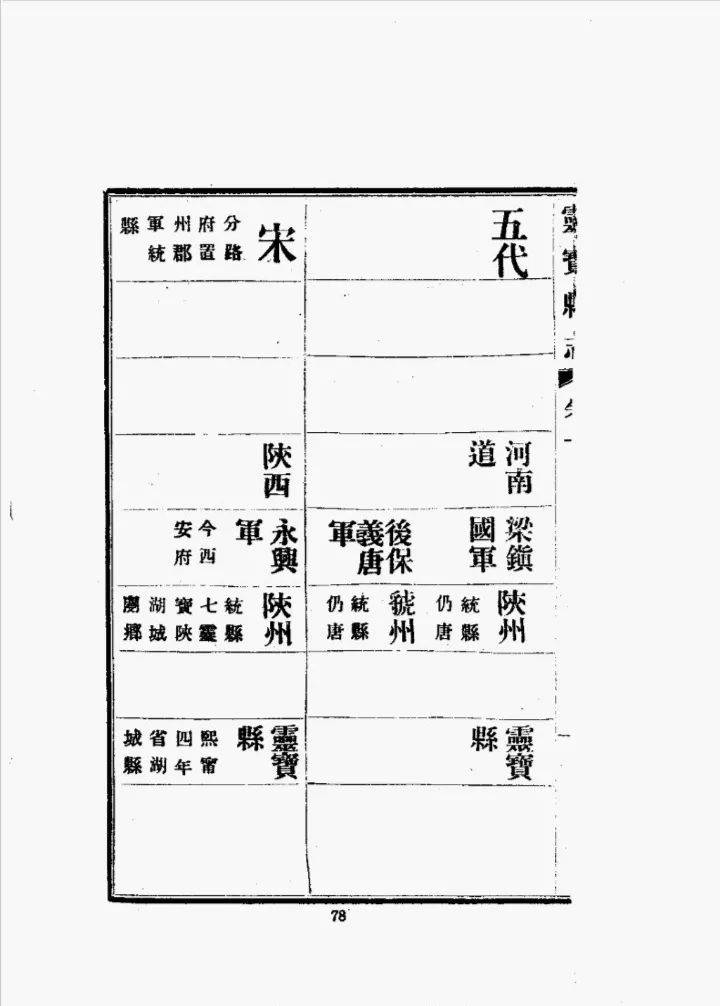 靈寶縣志
卷一
五代
河南
道
梁鎮
國軍
後保
義唐
軍
陝州
統縣
仍唐
虢州
統縣
仍唐
靈寶
縣
宋
分路
府置
州郡
軍統
縣
陝西
永興
軍
今西
安府
陝州
統縣
七靈
寶陝
湖城
閿鄉
靈寶
縣
熙甯
四年
省湖
城縣
78